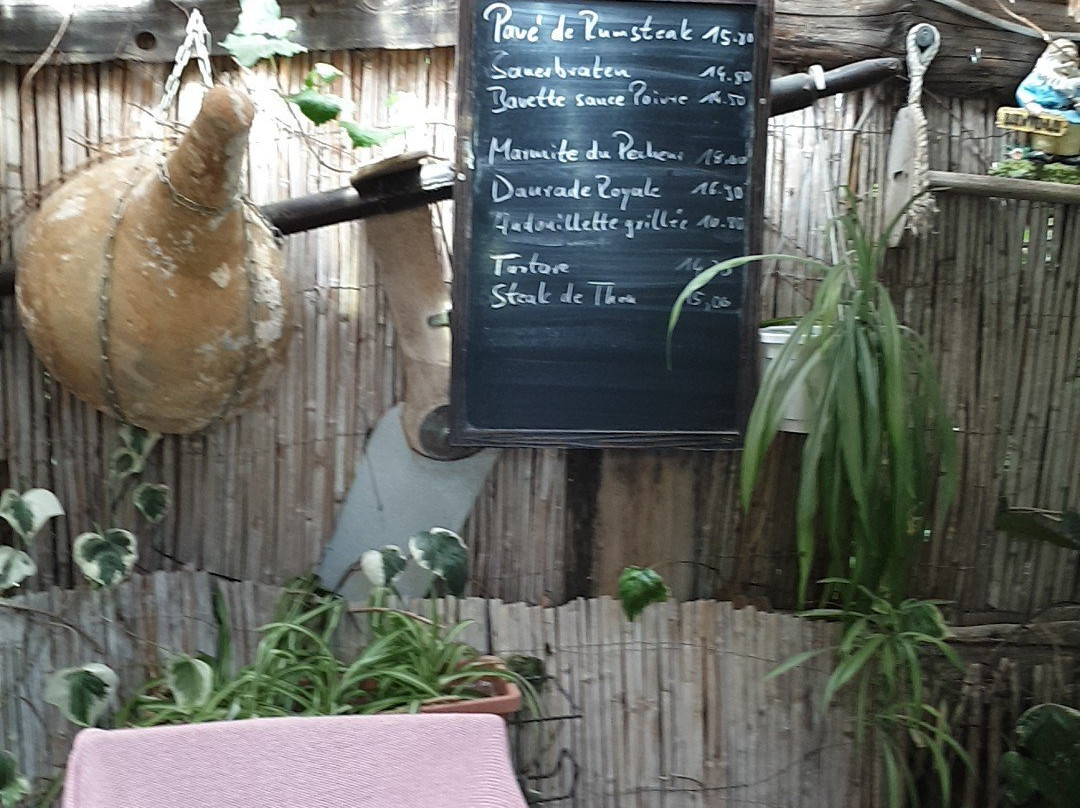 Pavé de Rumsteak 15.80
Sauerbraten 14.80
Bavette sauce Poivre 14.50
Marmite du Pecheur
Daurade Royale 16.90
Andouillette grillée 10.80
Tartare
Steak de Thon 15,00